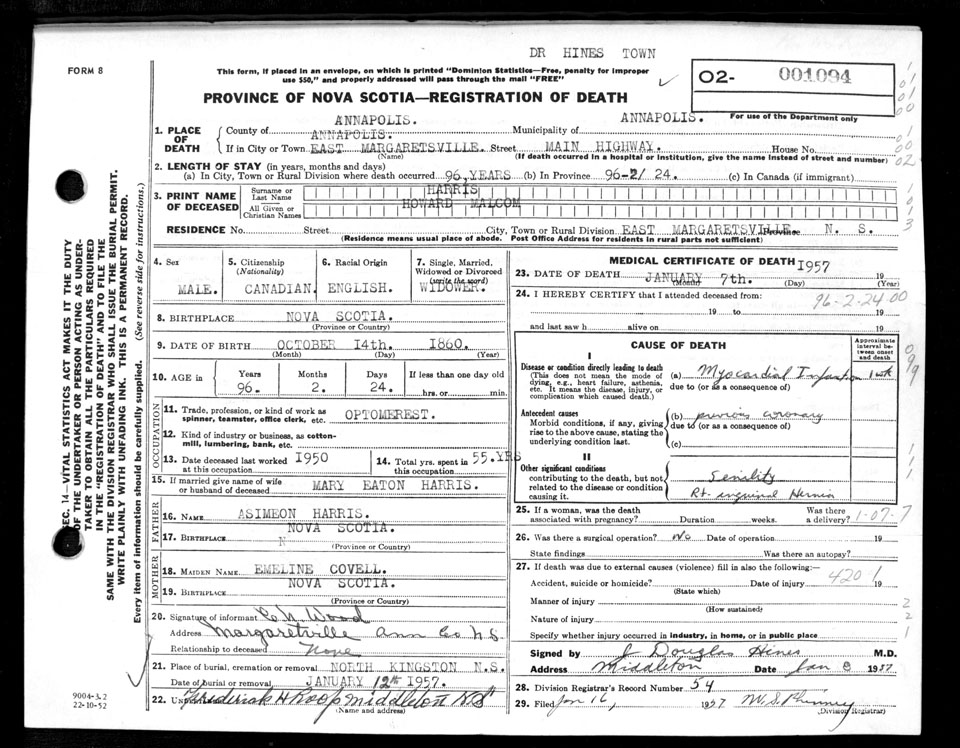 DR HINES TOWN
FORM 8
This form, if placed in an envelope, on which is printed "Dominion Statistics—Free, penalty for improper
use $50," and properly addressed will pass through the mail "FREE"
O2- 001094
For use of the Department only
PROVINCE OF NOVA SCOTIA—REGISTRATION OF DEATH
1. PLACE OF DEATH
County of ANNAPOLIS. Municipality of ANNAPOLIS.
ANNAPOLIS.
If in City or Town EAST MARGARETSVILLE. Street MAIN HIGHWAY. House No.
(Name) (If death occurred in a hospital or institution, give the name instead of street and number)
2. LENGTH OF STAY (in years, months and days)
(a) In City, Town or Rural Division where death occurred 96 YEARS (b) In Province 96-2/ 24. (c) In Canada (if immigrant)
3. PRINT NAME OF DECEASED
Surname or Last Name HARRIS
All Given or Christian Names HOWARD MALCOM
RESIDENCE No. Street City, Town or Rural Division EAST MARGARETSVILLE. Province N. S.
(Residence means usual place of abode. Post Office Address for residents in rural parts not sufficient)
4. Sex
MALE.
5. Citizenship
(Nationality)
CANADIAN.
6. Racial Origin
ENGLISH.
7. Single, Married,
Widowed or Divorced
(write the word)
WIDOWER.
8. BIRTHPLACE NOVA SCOTIA.
(Province or Country)
9. DATE OF BIRTH OCTOBER 14th. 1860.
(Month) (Day) (Year)
10. AGE in
Years Months Days If less than one day old
96. 2. 24. hrs. or min.
OCCUPATION
11. Trade, profession, or kind of work as
spinner, teamster, office clerk, etc. OPTOMEREST.
12. Kind of industry or business, as cotton-
mill, lumbering, bank, etc.
13. Date deceased last worked
at this occupation 1950
14. Total yrs. spent in
this occupation 55.YRS
15. If married give name of wife
or husband of deceased MARY EATON HARRIS.
FATHER
16. NAME ASIMEON HARRIS.
17. BIRTHPLACE NOVA SCOTIA.
N
(Province or Country)
MOTHER
18. MAIDEN NAME EMELINE COVELL.
19. BIRTHPLACE NOVA SCOTIA.
(Province or Country)
20. Signature of informant C. N. Wood
Address Margaretville Ann Co N.S.
Relationship to deceased None
21. Place of burial, cremation or removal NORTH KINGSTON N.S.
Date of burial or removal JANUARY 12th 1957.
22. Undertaker Frederick H Roop Middleton N.S.
(Name and address)
MEDICAL CERTIFICATE OF DEATH
23. DATE OF DEATH JANUARY 7th. 1957 19
(Month) (Day) (Year)
24. I HEREBY CERTIFY that I attended deceased from:
96-2-24 00
19 to 19
and last saw h alive on 19
CAUSE OF DEATH
Approximate interval between onset and death
I
Disease or condition directly leading to death
(This does not mean the mode of
dying, e.g., heart failure, asthenia,
etc. It means the disease, injury, or
complication which caused death.
(a) Myocardial Infarction 1 wk
due to (or as a consequence of)
Antecedent causes
Morbid conditions, if any, giving
rise to the above cause, stating the
underlying condition last.
(b) previous coronary
due to (or as a consequence of)
(c)
II
Other significant conditions
contributing to the death, but not
related to the disease or condition
causing it.
Senility
Rt. inguinal Hernia
25. If a woman, was the death
associated with pregnancy? Duration weeks. Was there
a delivery? 1-07-7
26. Was there a surgical operation? No Date of operation 19
State findings Was there an autopsy?
27. If death was due to external causes (violence) fill in also the following:—
Accident, suicide or homicide? Date of injury 420 1 19
(State which)
Manner of injury
(How sustained)
Nature of injury
Specify whether injury occurred in industry, in home, or in public place
Signed by J Douglas Hines M.D.
Address Middleton Date Jan 8 1957
28. Division Registrar's Record Number 54
29. Filed Jan 16, 1957 M. S. Phinney
(Division Registrar)
SEC. 14—VITAL STATISTICS ACT MAKES IT THE DUTY
OF THE UNDERTAKER OR PERSON ACTING AS UNDER-
TAKER TO OBTAIN ALL THE PARTICULARS REQUIRED
IN THE "REGISTRATION OF DEATH" AND TO FILE THE
SAME WITH THE DIVISION REGISTRAR WHO SHALL ISSUE THE BURIAL PERMIT.
WRITE PLAINLY WITH UNFADING INK. THIS IS A PERMANENT RECORD.
Every item of information should be carefully supplied. (See reverse side for instructions.)
9004-3.2
22-10-52